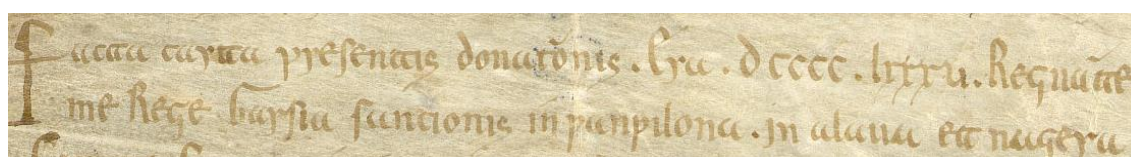 Facta carta presentis donatiõnis. Era. dcccc. lxxxii. Regnãte
me Rege Garsia sancionis in panpilona. in alaua et nagera